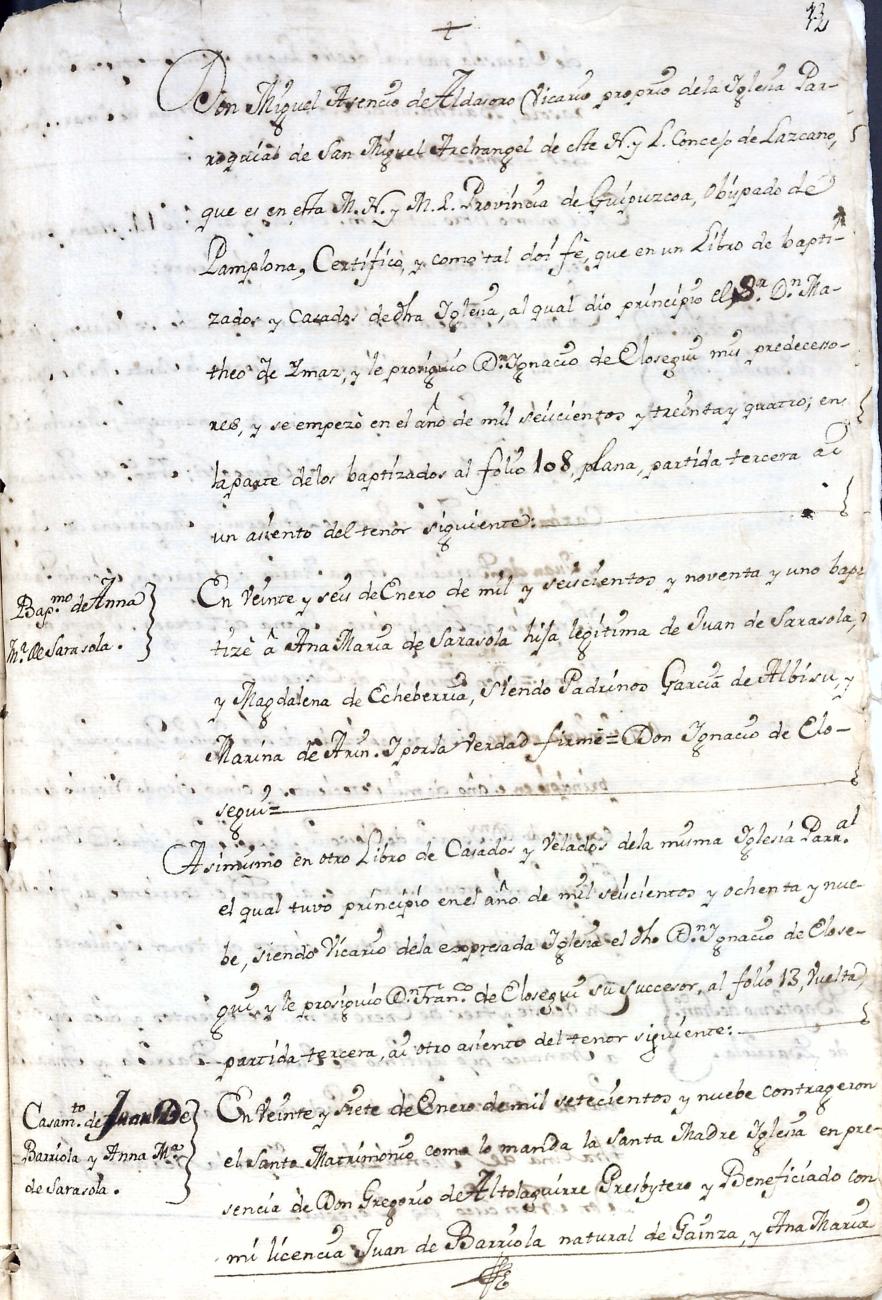 12
+
Don Miguel Asencio de Aldasoro Vicario proprio dela Iglesia Par-
roquial de San Miguel Archangel de este N. y L. Concejo de Lazcano,
que es en esta M. N. y M. L. Provincia de Guipuzcoa, Obispado de
Pamplona, Certifico, y como tal doi fè, que en un Libro de bapti-
zados y Casados de dha Iglesia, al qual dio principio el Sr. Dn. Ma-
theo de Ymaz, y le prosiguio Dn. Ignacio de Elosegui mis predecesso-
res, y se empezò en el año de mil seiscientos y treinta y quatro; en
la parte de los baptizados al folio 108, plana, partida tercera ai
un asiento del tenor siguiente:
Bap.mo de Anna
Ma. de Sarasola.
En Veinte y seis de Enero de mil y seiscientos y noventa y uno bap-
tizè â Ana Maria de Sarasola hija legitima de Juan de Sarasola,
y Magdalena de Echeberria, Siendo Padrinos Garcia de Albisu, y
Marina de Arin. I por la Verdad firmè = Don Ignacio de Elo-
segui =
Asimismo en otro Libro de Casados y Velados dela misma Iglesia Parr.al
el qual tuvo principio en el año de mil seiscientos y ochenta y nue-
be, siendo Vicario dela expresada Iglesia el dho Dn. Ignacio de Elose-
gui, y le prosiguio Dn. Franco. de Elosegui su successor, al folio 13, Vuelta,
partida tercera, ai otro asiento del tenor siguiente:
Casam.to de Juan De
Barriola y Anna Ma.
de Sarasola.
En Veinte y Siete de Enero de mil setecientos y nuebe contrageron
el Santo Matrimonio como lo manda la Santa Madre Iglesia en pre-
sencia de Don Gregorio de Altolaguirre Presbytero y Beneficiado con
mi licencia Juan de Barriola natural de Gainza, y Ana Maria